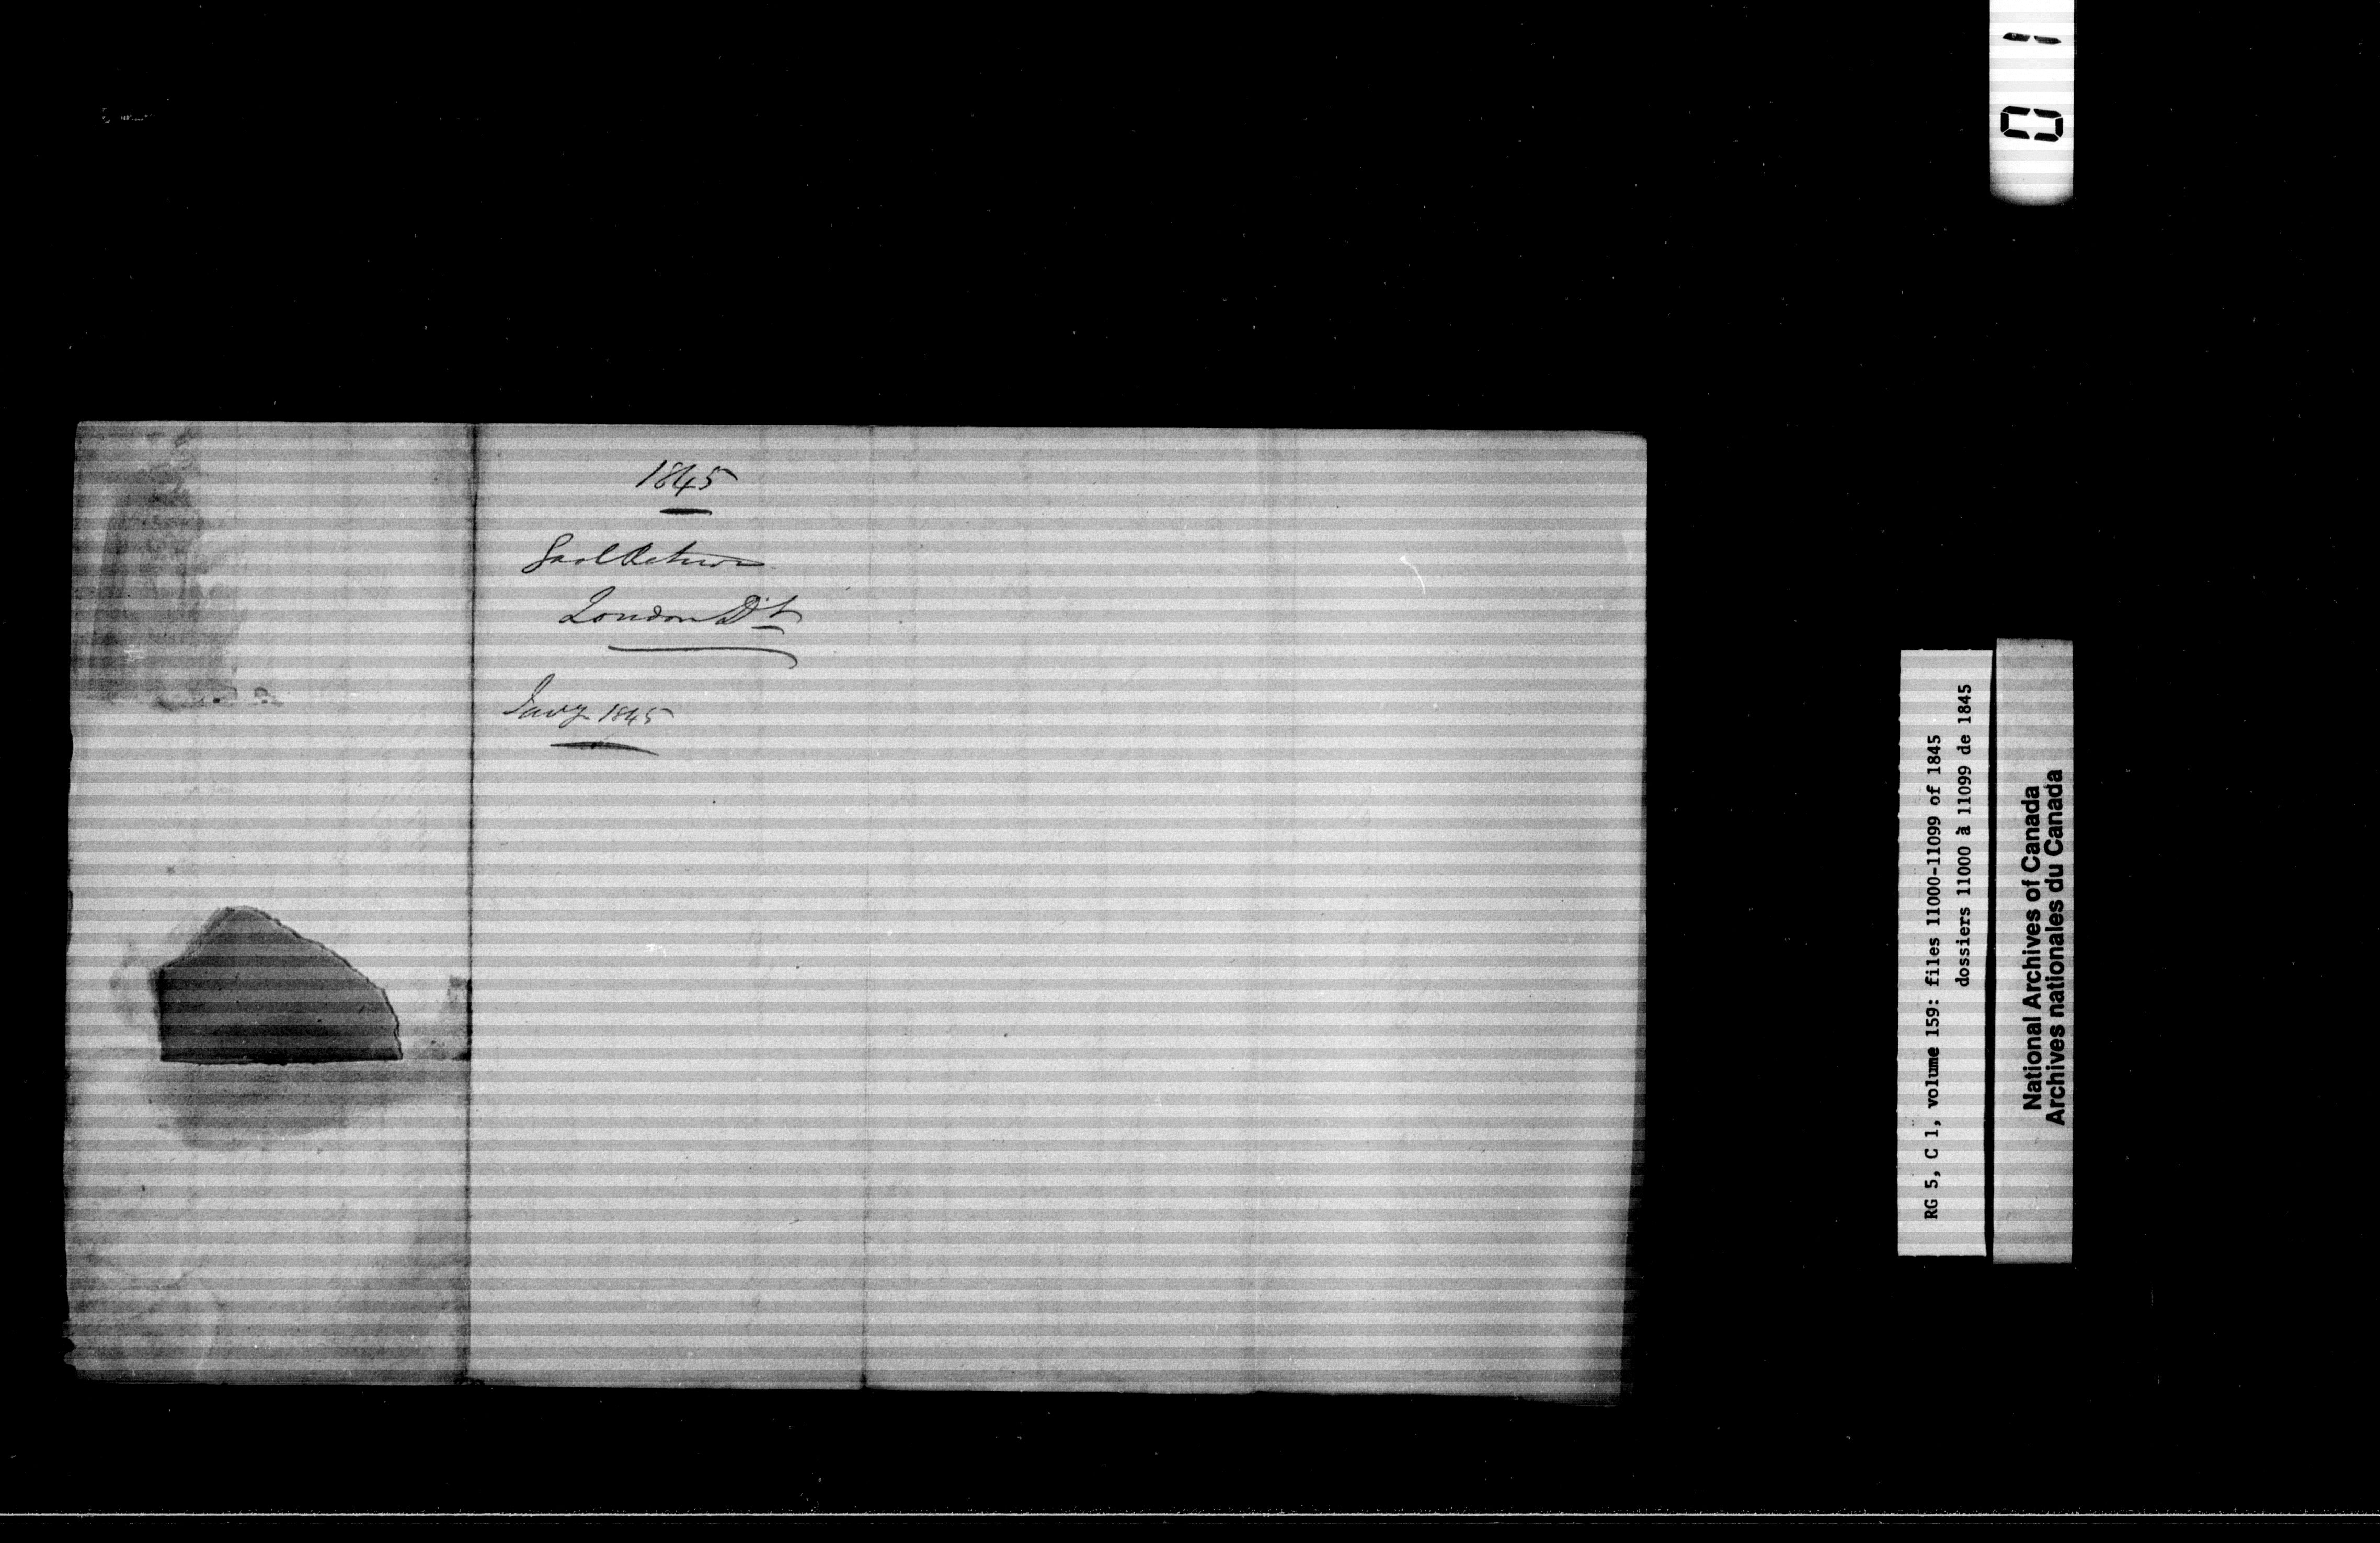 1845
Gaol Return
London Dt
Jany 1845
RG 5, C 1, volume 159: files 11000-11099 of 1845
dossiers 11000 à 11099 de 1845
National Archives of Canada
Archives nationales du Canada
01